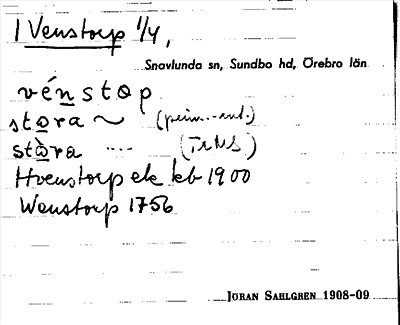 1 Venstorp 1/4,
Snavlunda sn, Sundbo hd, Örebro län
vénstop
stora ~
stòra ....
Hvenstorp ek kb 1900
Wenstorp 1756
JÖRAN SAHLGREN 1908-09